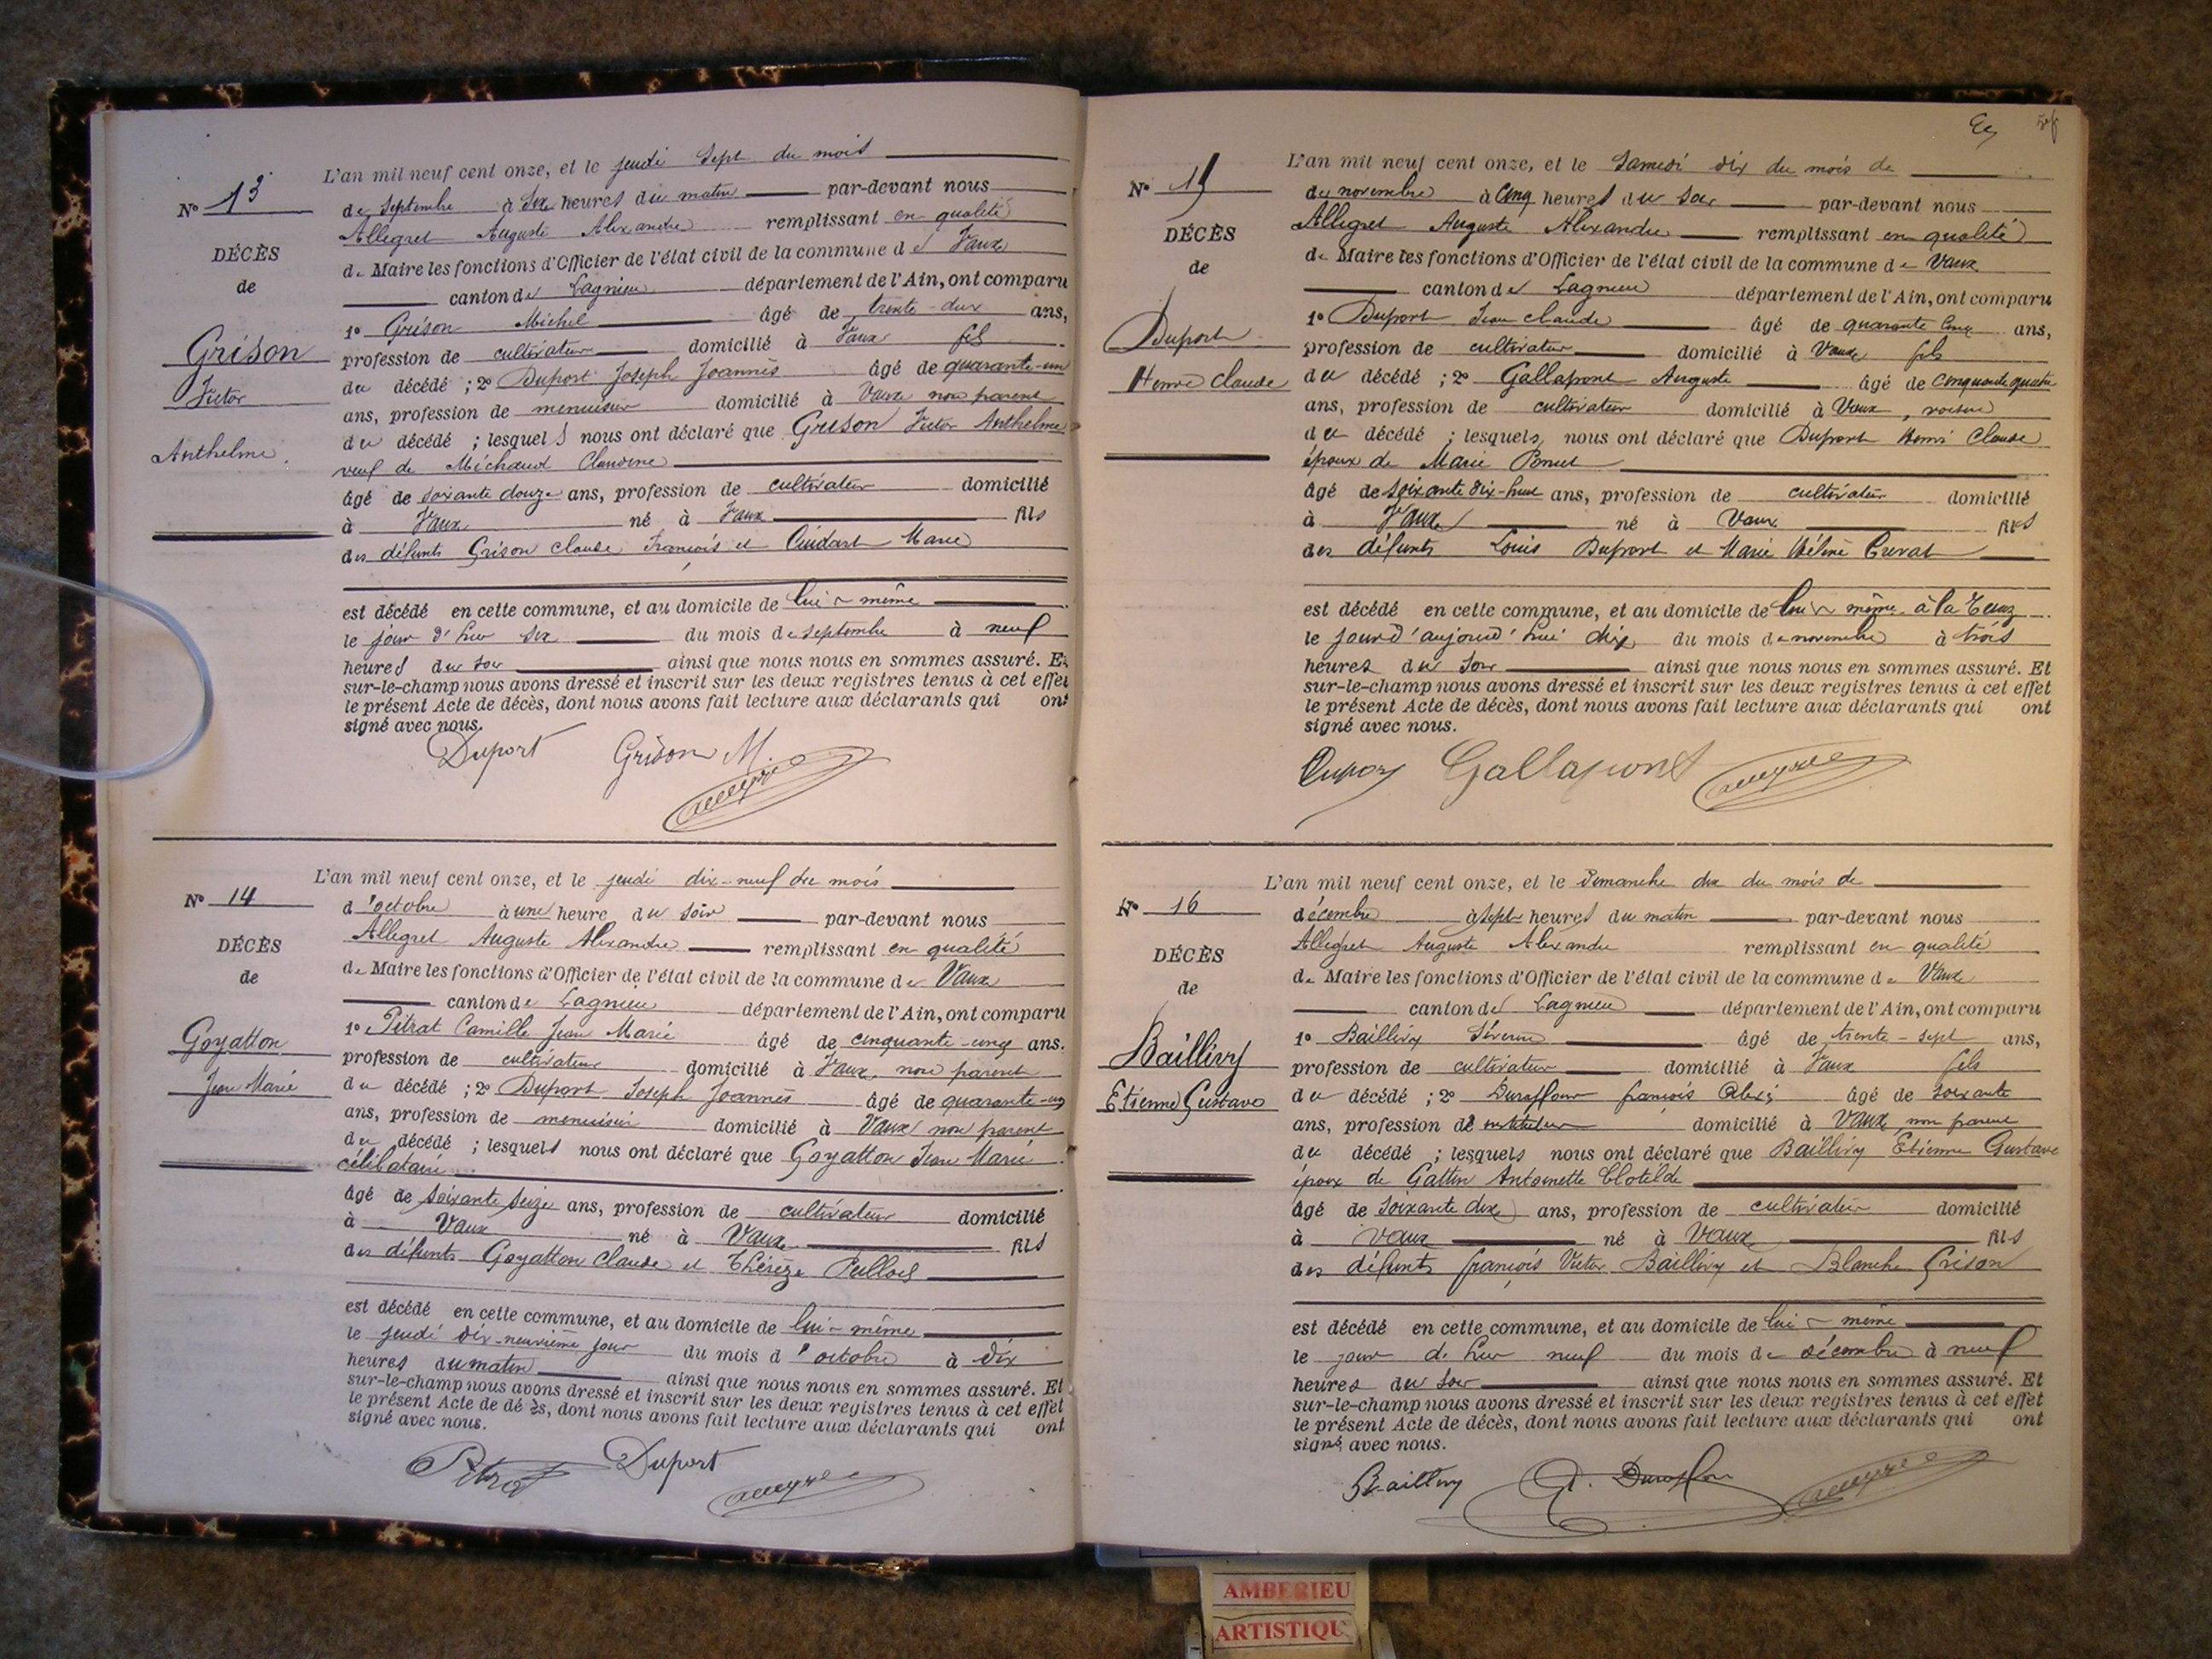 L'an mil neuf cent onze, et le jeudi sept du mois
N° 13
de septembre à six heures du matin par-devant nous
Allegret Auguste Alexandre remplissant en qualité
DÉCÈS
de Maire les fonctions d'Officier de l'état civil de la commune de Vaux
de
canton de Lagnieu département de l'Ain, ont comparu
1° Grison Michel âgé de trente-deux ans,
Grison
profession de cultivateur domicilié à Vaux fils
du décédé ; 2° Duport Joseph Joannès âgé de quarante-un
Victor
ans, profession de menuisier domicilié à Vaux non parent
du décédé ; lesquels nous ont déclaré que Grison Victor Anthelme
Anthelme.
veuf de Michaud Claudine
âgé de soixante douze ans, profession de cultivateur domicilié
à Vaux né à Vaux fils
des défunts Grison Claude François et Marie
est décédé en cette commune, et au domicile de lui-même
le jour d'hier six du mois de septembre à neuf
heures du soir ainsi que nous nous en sommes assuré. Et
sur-le-champ nous avons dressé et inscrit sur les deux registres tenus à cet effet
le présent Acte de décès, dont nous avons fait lecture aux déclarants qui ont
signé avec nous.
Duport Grison M.
L'an mil neuf cent onze, et le jeudi dix-neuf du mois
N° 14
d'octobre à une heure du soir par-devant nous
Allegret Auguste Alexandre remplissant en qualité
DÉCÈS
de Maire les fonctions d'Officier de l'état civil de la commune de Vaux
de
canton de Lagnieu département de l'Ain, ont comparu
1° Pitrat Camille Jean Marie âgé de cinquante-cinq ans.
Goyatton
profession de cultivateur domicilié à Vaux, non parent
Jean Marie
du décédé ; 2° Duport Joseph Joannès âgé de quarante-un
ans, profession de menuisier domicilié à Vaux non parent
du décédé ; lesquels nous ont déclaré que Goyatton Jean Marie
célibataire
âgé de soixante seize ans, profession de cultivateur domicilié
à Vaux né à Vaux fils
des défunts Goyatton Claude et Thérèze
est décédé en cette commune, et au domicile de lui-même
le jeudi dix-neuvième jour du mois d'octobre à dix
heures du matin ainsi que nous nous en sommes assuré. Et
sur-le-champ nous avons dressé et inscrit sur les deux registres tenus à cet effet
le présent Acte de décès, dont nous avons fait lecture aux déclarants qui ont
signé avec nous.
Pitrat Duport
L'an mil neuf cent onze, et le Samedi dix du mois de
N° 15
de novembre à cinq heures du soir par-devant nous
Allegret Auguste Alexandre remplissant en qualité
DÉCÈS
de Maire les fonctions d'Officier de l'état civil de la commune de Vaux
de
canton de Lagnieu département de l'Ain, ont comparu
1° Duport Jean Claude âgé de quarante cinq ans,
Duport
profession de cultivateur domicilié à Vaux fils
Henri Claude
du décédé ; 2° Gallapont Auguste âgé de cinquante quatre
ans, profession de cultivateur domicilié à Vaux, voisin
du décédé ; lesquels nous ont déclaré que Duport Henri Claude
époux de Marie
âgé de soixante dix-huit ans, profession de cultivateur domicilié
à Vaux né à Vaux fils
des défunts Louis Duport et Marie Hélène
est décédé en cette commune, et au domicile de lui-même à la
le jour d'aujourd'hui dix du mois de novembre à trois
heures du soir ainsi que nous nous en sommes assuré. Et
sur-le-champ nous avons dressé et inscrit sur les deux registres tenus à cet effet
le présent Acte de décès, dont nous avons fait lecture aux déclarants qui ont
signé avec nous.
Duport Gallapont
L'an mil neuf cent onze, et le Dimanche dix du mois de
N° 16
décembre à sept heures du matin par-devant nous
Allegret Auguste Alexandre remplissant en qualité
DÉCÈS
de Maire les fonctions d'Officier de l'état civil de la commune de Vaux
de
canton de Lagnieu département de l'Ain, ont comparu
1° Baillivy Séverin âgé de trente-sept ans,
Baillivy
profession de cultivateur domicilié à Vaux fils
Etienne Gustave
du décédé ; 2° Duraffour françois Alexis âgé de soixante
ans, profession de instituteur domicilié à Vaux, non parent
du décédé ; lesquels nous ont déclaré que Baillivy Etienne Gustave
époux de Gattin Antoinette Clotilde
âgé de soixante dix ans, profession de cultivateur domicilié
à Vaux né à Vaux fils
des défunts françois Victor Baillivy et Blanche Grison
est décédé en cette commune, et au domicile de lui-même
le jour d'hier neuf du mois de décembre à neuf
heures du soir ainsi que nous nous en sommes assuré. Et
sur-le-champ nous avons dressé et inscrit sur les deux registres tenus à cet effet
le présent Acte de décès, dont nous avons fait lecture aux déclarants qui ont
signé avec nous.
Baillivy Duraffour
AMBERIEU
ARTISTIQU